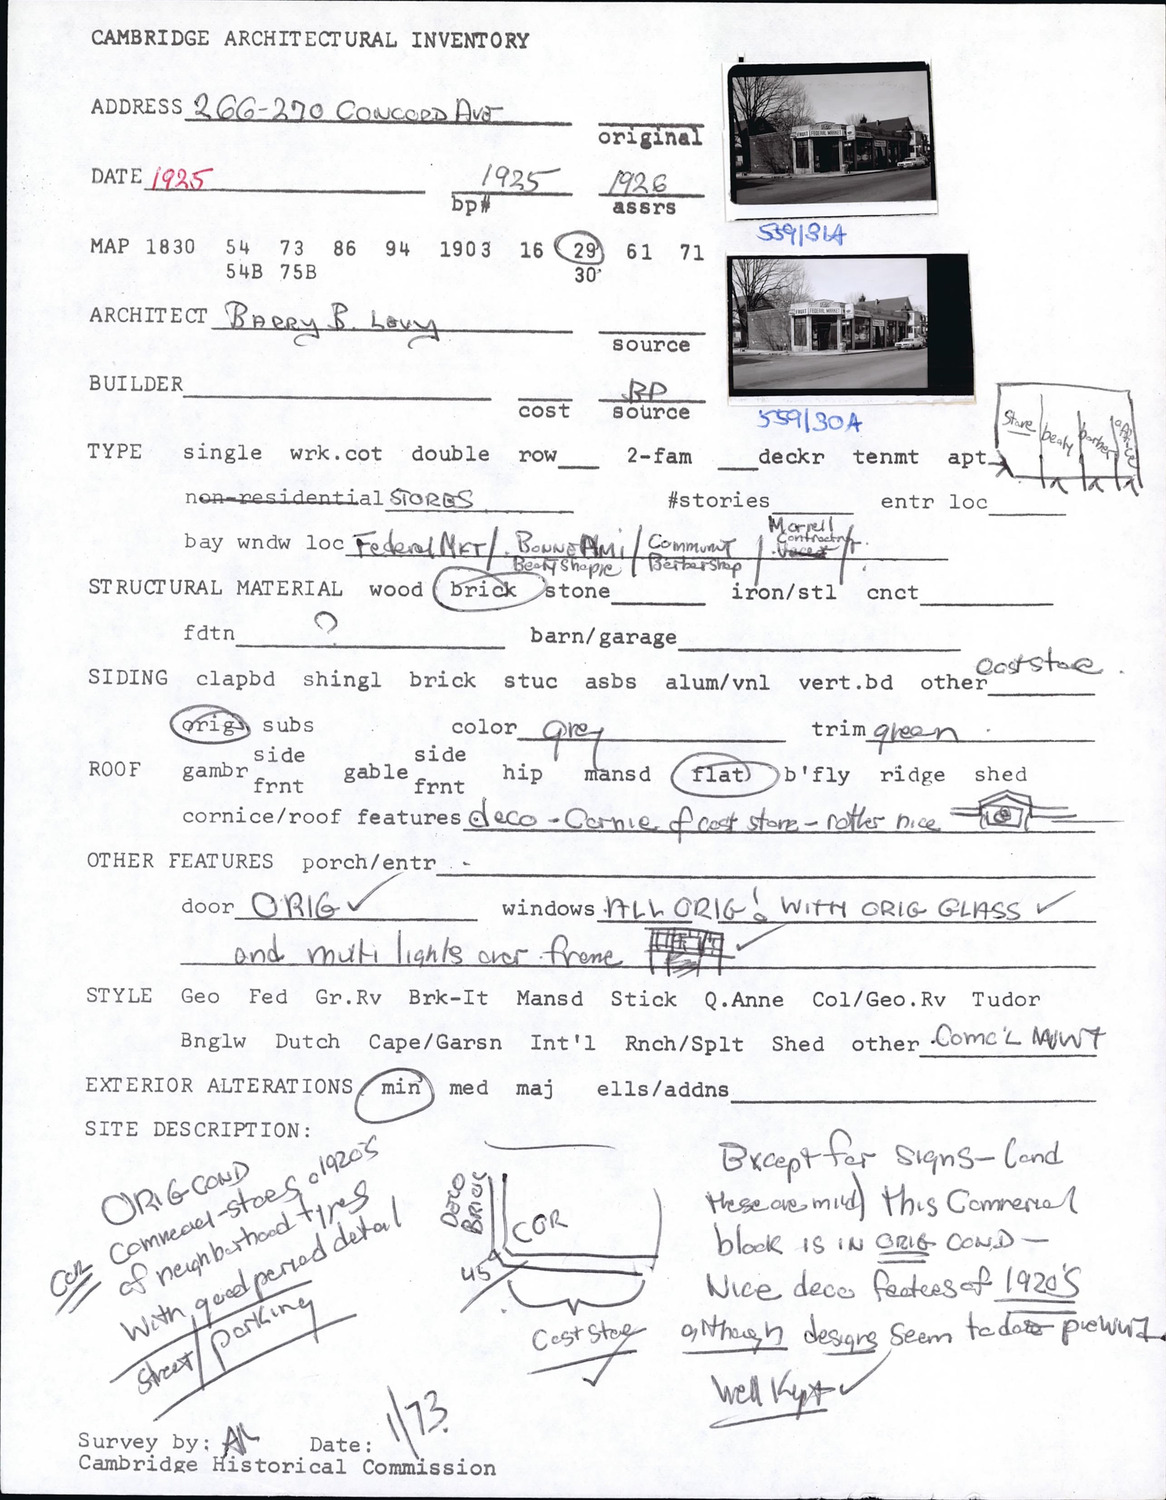 CAMBRIDGE ARCHITECTURAL INVENTORY
ADDRESS 266-270 CONCORD AVE
original
DATE 1925 1925 1926
bp# assrs
559/31A
MAP 1830 54 73 86 94 1903 16 29 61 71
54B 75B 30
ARCHITECT BARRY B. Levy
source
BUILDER BP
cost source
559/30A
Store beaty barber office
TYPE single wrk.cot double row 2-fam deckr tenmt apt
non-residential STORES #stories entr loc
bay wndw loc Federal MKT / BONNE AMI / Communit / Morrell Contracting
Beaty Shoppe Barber Shop
STRUCTURAL MATERIAL wood brick stone iron/stl cnct
fdtn ? barn/garage
SIDING clapbd shingl brick stuc asbs alum/vnl vert.bd other cast stone
orig subs color grey trim green
ROOF gambr side frnt gable side frnt hip mansd flat b'fly ridge shed
cornice/roof features deco - Cornie of cast stone - rather nice
OTHER FEATURES porch/entr
door ORIG ✓ windows ALL ORIG! WITH ORIG GLASS ✓
and multi lights over frame ✓
STYLE Geo Fed Gr.Rv Brk-It Mansd Stick Q.Anne Col/Geo.Rv Tudor
Bnglw Dutch Cape/Garsn Int'l Rnch/Splt Shed other Comc'L
EXTERIOR ALTERATIONS min med maj ells/addns
SITE DESCRIPTION:
ORIG COND
Commercial-stores 1920'S
of neighborhood types
With good period detail
COR
Street/parking
DECO BRICK
COR
45
Cast Stone ✓
Except for signs - (and
these are mild) this Commercial
block IS IN ORIG COND -
Nice deco features of 1920'S
although designs seem to date
Well Kept ✓
Survey by: Date: 1/73
Cambridge Historical Commission